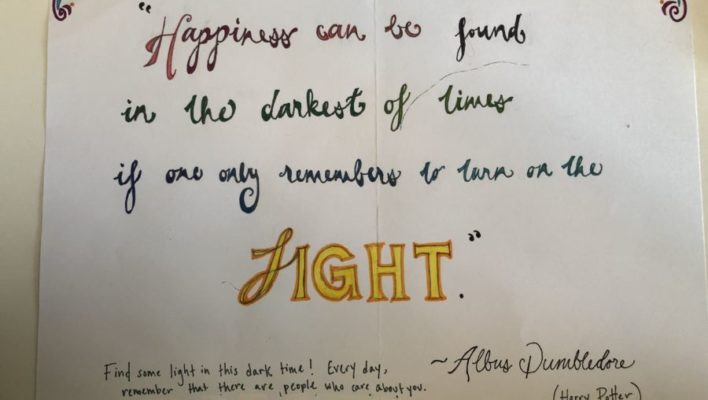 "Happiness can be found
in the darkest of times
if one only remembers to turn on the
LIGHT".
Find some light in this dark time! Every day,
remember that there are people who care about you.
~ Albus Dumbledore
(Harry Potter)